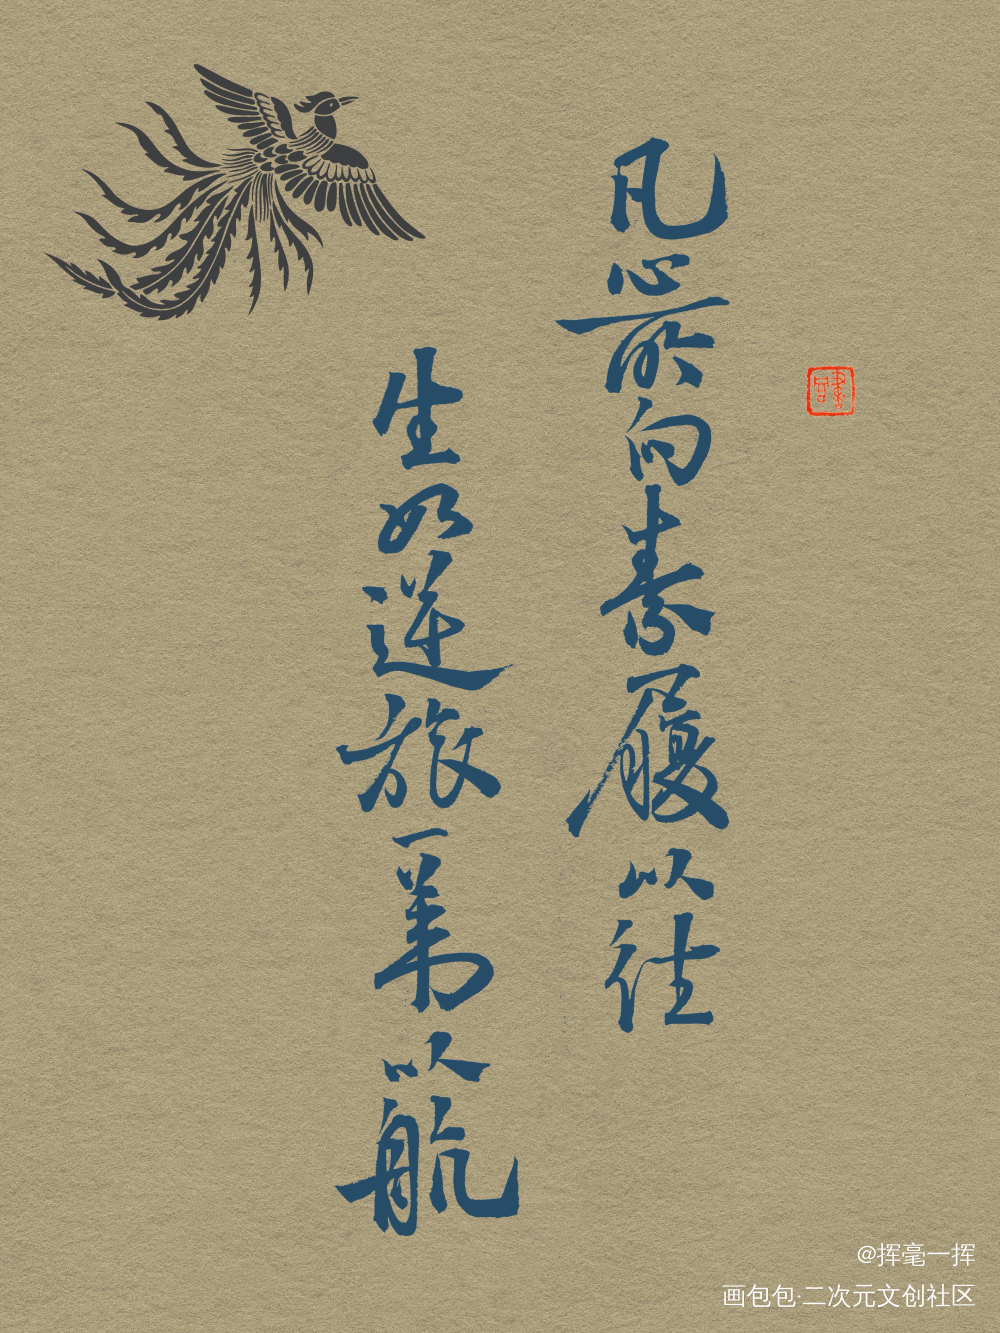 凡心所向素履以往
生如逆旅一苇以航
@挥毫一挥
画包包·二次元文创社区